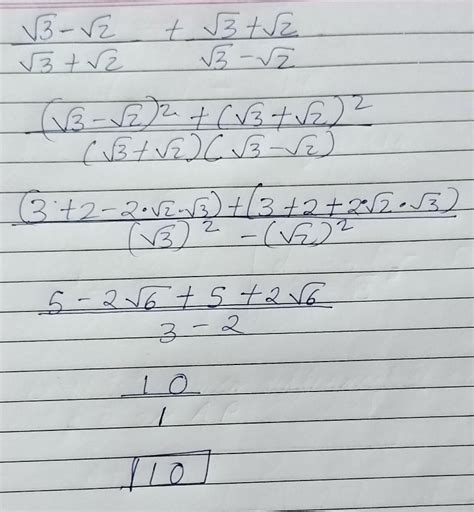 (√3 - √2)/(√3 + √2) + (√3 + √2)/(√3 - √2)
((√3 - √2)² + (√3 + √2)²)/((√3 + √2)(√3 - √2))
((3 + 2 - 2·√2·√3) + (3 + 2 + 2·√2·√3))/((√3)² - (√2)²)
(5 - 2√6 + 5 + 2√6)/(3 - 2)
10/1
10